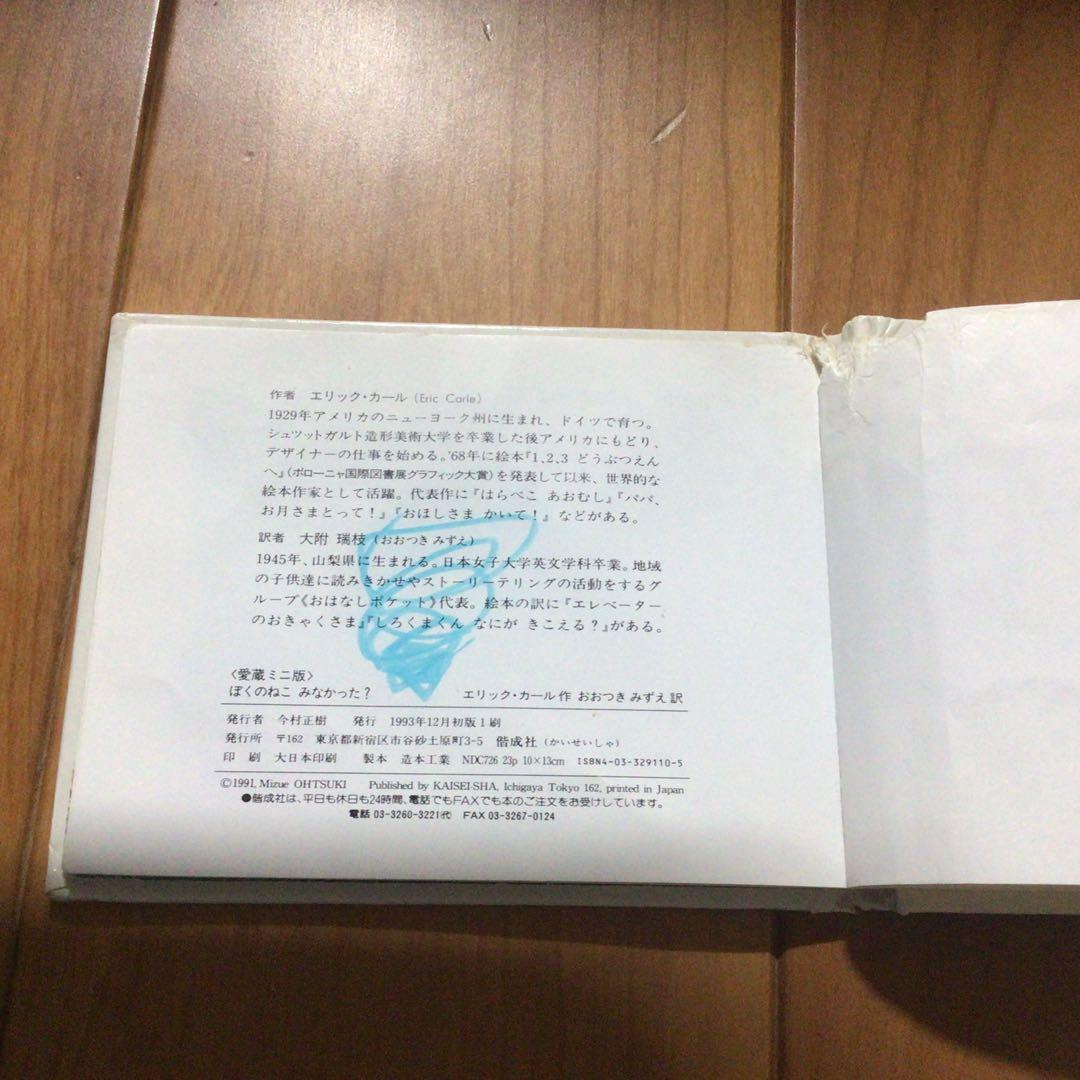 作者 エリック・カール (Eric Carle)
1929年アメリカのニューヨーク州に生まれ、ドイツで育つ。
シュツットガルト造形美術大学を卒業した後アメリカにもどり、
デザイナーの仕事を始める。'68年に絵本『1,2,3 どうぶつえん
へ』(ボローニャ国際図書展グラフィック大賞)を発表して以来、世界的な
絵本作家として活躍。代表作に『はらぺこ あおむし』『パパ、
お月さまとって!』『おほしさま かいて!』などがある。
訳者 大附 瑞枝(おおつき みずえ)
1945年、山梨県に生まれる。日本女子大学英文学科卒業。地域
の子供達に読みきかせやストーリーテリングの活動をするグ
ループ《おはなしポケット》代表。絵本の訳に『エレベーター
のおきゃくさま』『しろくまくん なにが きこえる?』がある。
〈愛蔵ミニ版〉
ぼくのねこ みなかった? エリック・カール 作 おおつき みずえ 訳
発行者 今村正樹 発行 1993年12月初版1刷
発行所 〒162 東京都新宿区市谷砂土原町3-5 偕成社 (かいせいしゃ)
印 刷 大日本印刷 製本 造本工業 NDC726 23p 10×13cm ISBN4-03-329110-5
©1991, Mizue OHTSUKI Published by KAISEI-SHA, Ichigaya Tokyo 162, printed in Japan
●偕成社は、平日も休日も24時間、電話でもFAXでも本のご注文をお受けしています。
電話 03-3260-3221(代) FAX 03-3267-0124